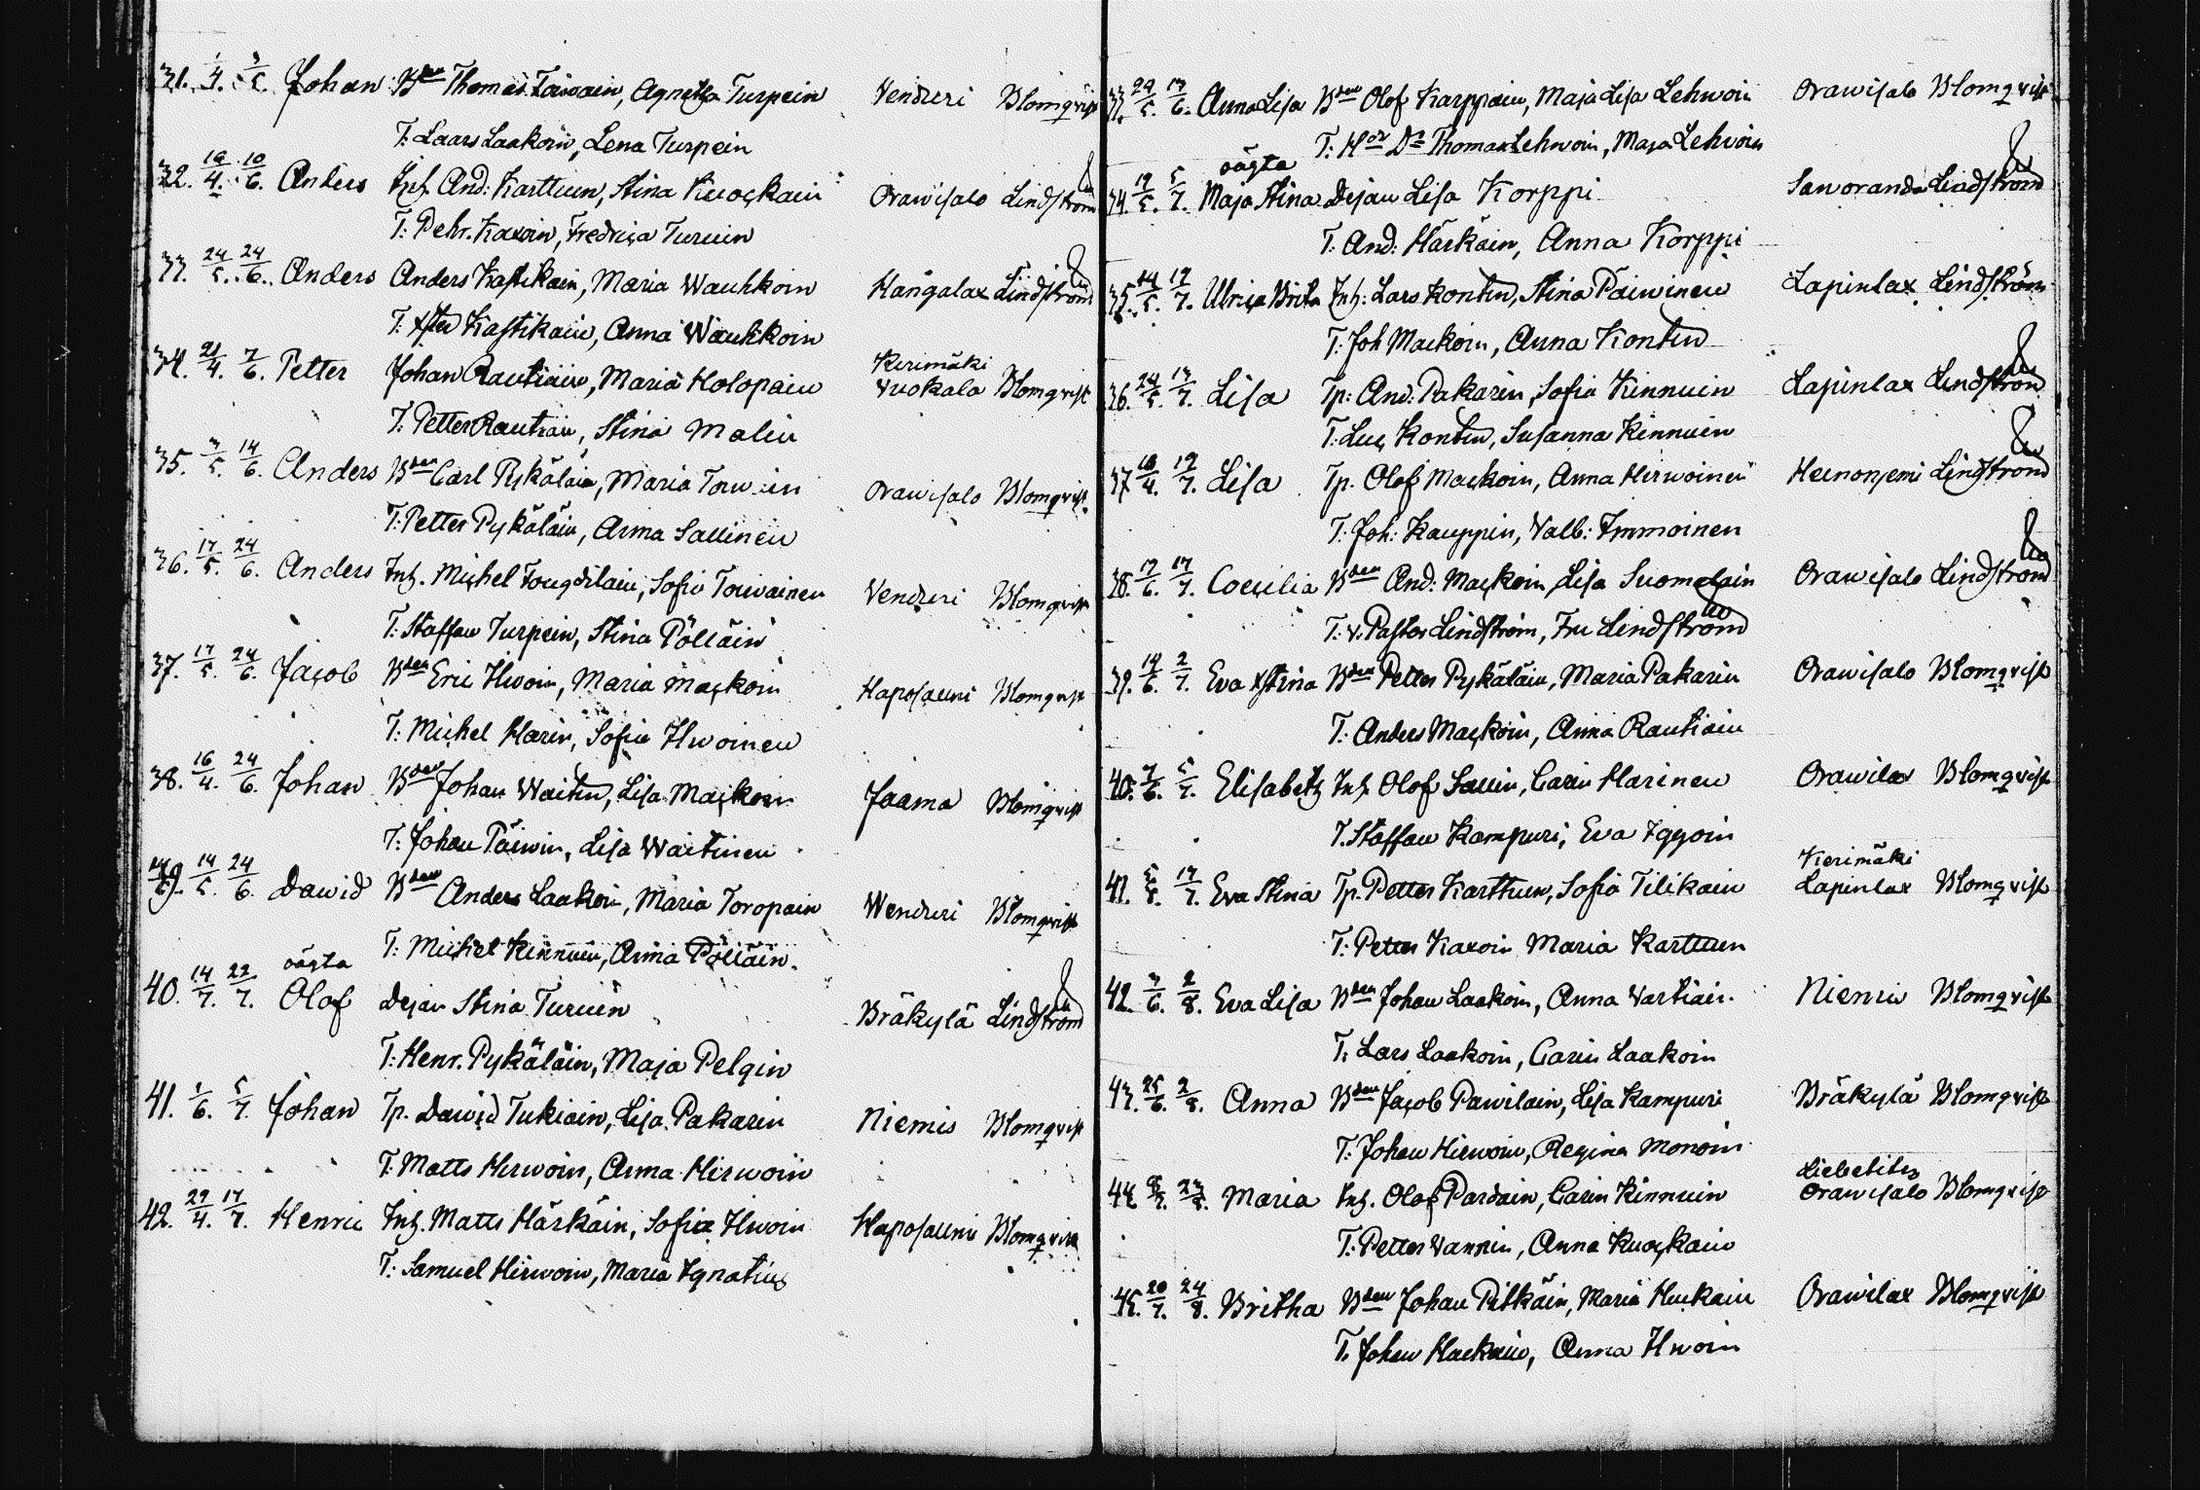 31. 1/4. 3/5. Johan Bden Thomas Toiwain, Agnetha Turpein Venduri Blomqvist
T: Laars Laakoin, Lena Turpein
32. 19/4. 10/6. Anders Inh. And: Karttuin, Stina Kuockain Orawisalo Lindström
T: Pehr. Kaxoin, Fredrica Turuin
33. 24/5. 24/6. Anders Anders Kastikain, Maria Wauhkoin Kangalax Lindström
T. Kastikain, Anna Wauhkoin
34. 21/4. 7/6. Petter Johan Rautiain, Maria Holopain Kerimäki Vuokala Blomqvist
T. Petter Rautiain, Stina Malin
35. 3/5. 14/6. Anders Bden Carl Pykäläin, Maria Orawisalo Blomqvist
T: Petter Pykäläin, Anna Sallinen
36. 17/5. 24/6. Anders Inh. Michel Sofia Toiwainen Venduri Blomqvist
T: Staffan Turpein, Stina Pölläin
37. 17/5. 24/6. Jacob Bden Eric Hwoin, Maria Mackoin Haposauni Blomqvist
T: Michel Harin, Sofia Hwoinen
38. 16/4. 24/6. Johan Bden Johan Waitin, Lisa Mackoin Jaama Blomqvist
T: Johan Päiwin, Lisa Waitinen
39. 14/5. 24/6. Dawid Bden Anders Laakoin, Maria Toropain Wenduri Blomqvist
T: Michel Kinnuin, Anna Pölläin.
oägta
40. 14/7. 22/7. Olof Dejan Stina Turuin Bräkylä Lindström
T: Henr. Pykäläin, Maja Pelgin
41. 1/6. 5/7. Johan Tp. Dawid Tukiain, Lisa Pakarin Niemis Blomqvist
T. Matts Hirwoin, Anna Hirwoin
42. 29/4. 17/7. Henric Inh. Matts Härkäin, Sofia Hwoin Haposauni Blomqvist
T: Samuel Hirwoin, Maria Ignatius
33. 29/5. 17/6. Anna Lisa Bden Olof Karppain, Maja Lisa Lehwoin Orawisalo Blomqvist
T: Thomas Lehwoin, Maja Lehwoin
oägta
34. 19/5. 5/7. Maja Stina Dejan Lisa Korppi Saworanda Lindström
T: And: Härkäin, Anna Korppi
35. 14/5. 12/7. Ulrica Brita Inh: Lars Kontin, Stina Päiwinen Lapinlax Lindström
T: Joh Mackoin, Anna Kontin
36. 24/5. 13/7. Lisa Tp: And: Pakarin, Sofia Kinnuin Lapinlax Lindström
T: Luc Kontin, Susanna Kinnuin
37. 18/4. 12/7. Lisa Tp. Olof Mackoin, Anna Hirwoinen Heinonjemi Lindström
T: Joh: Kauppin, Valb: Immoinen
38. 12/6. 17/7. Coecilia Bden And: Mackoin, Lisa Suomalain Orawisalo Lindström
T: v. Pastor Lindström, Fru Lindström
39. 14/6. 2/7. Eva Xstina Bden Petter Pykäläin, Maria Pakarin Orawisalo Blomqvist
T: Anders Mackoin, Anna Rautiain
40. 7/6. 5/7. Elisabeth Inh Olof Sallin, Carin Harinen Orawilax Blomqvist
T. Staffan Kampuri, Eva
41. 17/7. Eva Stina Tp. Petter Karttuin, Sofia Tilikain Kierimäki Lapinlax Blomqvist
T: Petter Kaxoin Maria Karttuin
42. 3/6. 2/8. Eva Lisa Bden Johan Laakoin, Anna Vartiain Niemis Blomqvist
T. Lars Laakoin, Carin Laakoin
43. 25/6. 2/8. Anna Bden Jacob Pawilain, Lisa Kampuri Bräkylä Blomqvist
T: Johan Hirwoin, Regina Monoin
44. Maria Inh. Olof Pardain, Carin Kinnuin Liebelitz Orawisalo Blomqvist
T: Petter Vannin, Anna Kuockain
45. 20/7. 24/8. Britha Bden Johan Pitkäin, Maria Huckain Orawilax Blomqvist
T. Johan Anna Hwoin